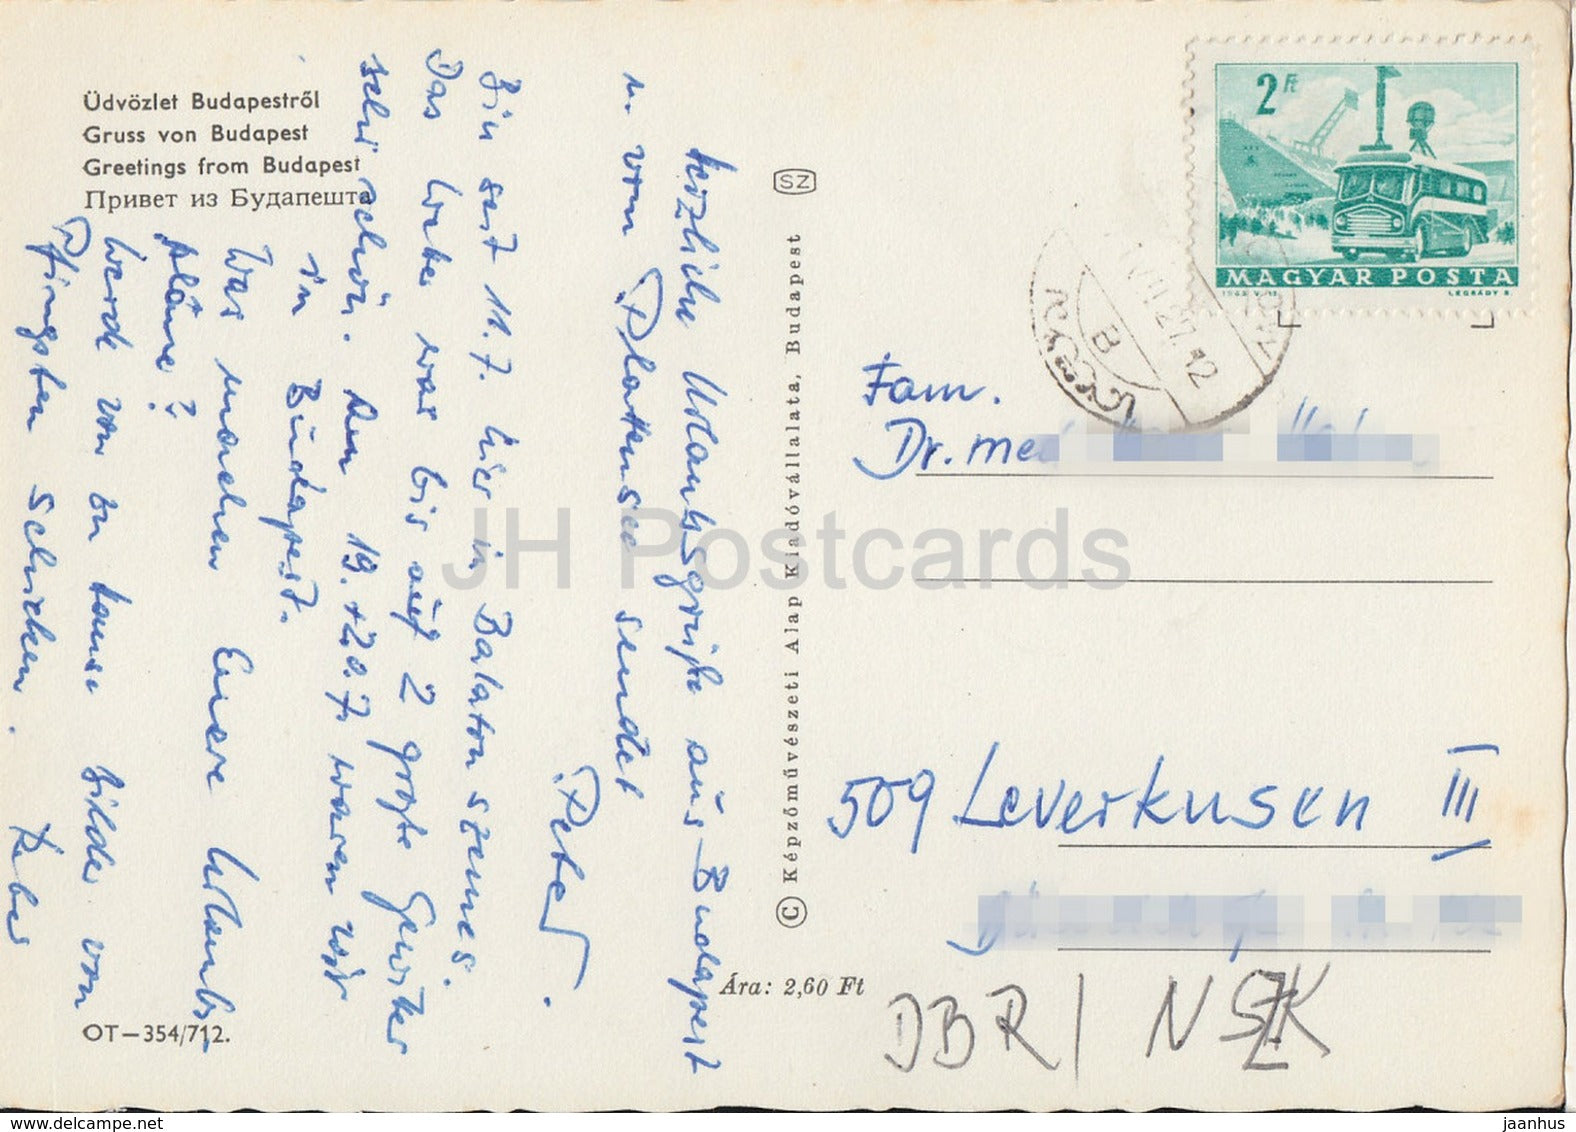 Üdvözlet Budapestről
Gruss von Budapest
Greetings from Budapest
Привет из Будапешта
Herzliche Urlaubsgrüße aus Budapest
u. vom Plattensee sendet
Peter.
Bin seit 11.7. hier in Balatonszemes.
Das Wetter war bis auf 2 große Gewitter
sehr schön. Am 19.+20.7. waren wir
in Budapest.
Was machen Euere Urlaubs-
pläne?
Werde von zu Hause Bilder von
Pfingsten schicken.
OT—354/712.
SZ
© Képzőművészeti Alap Kiadóvállalata, Budapest
Ára: 2,60 Ft
2 Ft
MAGYAR POSTA
LÉGRÁDY S.
B
27.12
Fam.
Dr. med
509 Leverkusen III
DBR / NSZK
JH Postcards
delcampe.net
jaanhus